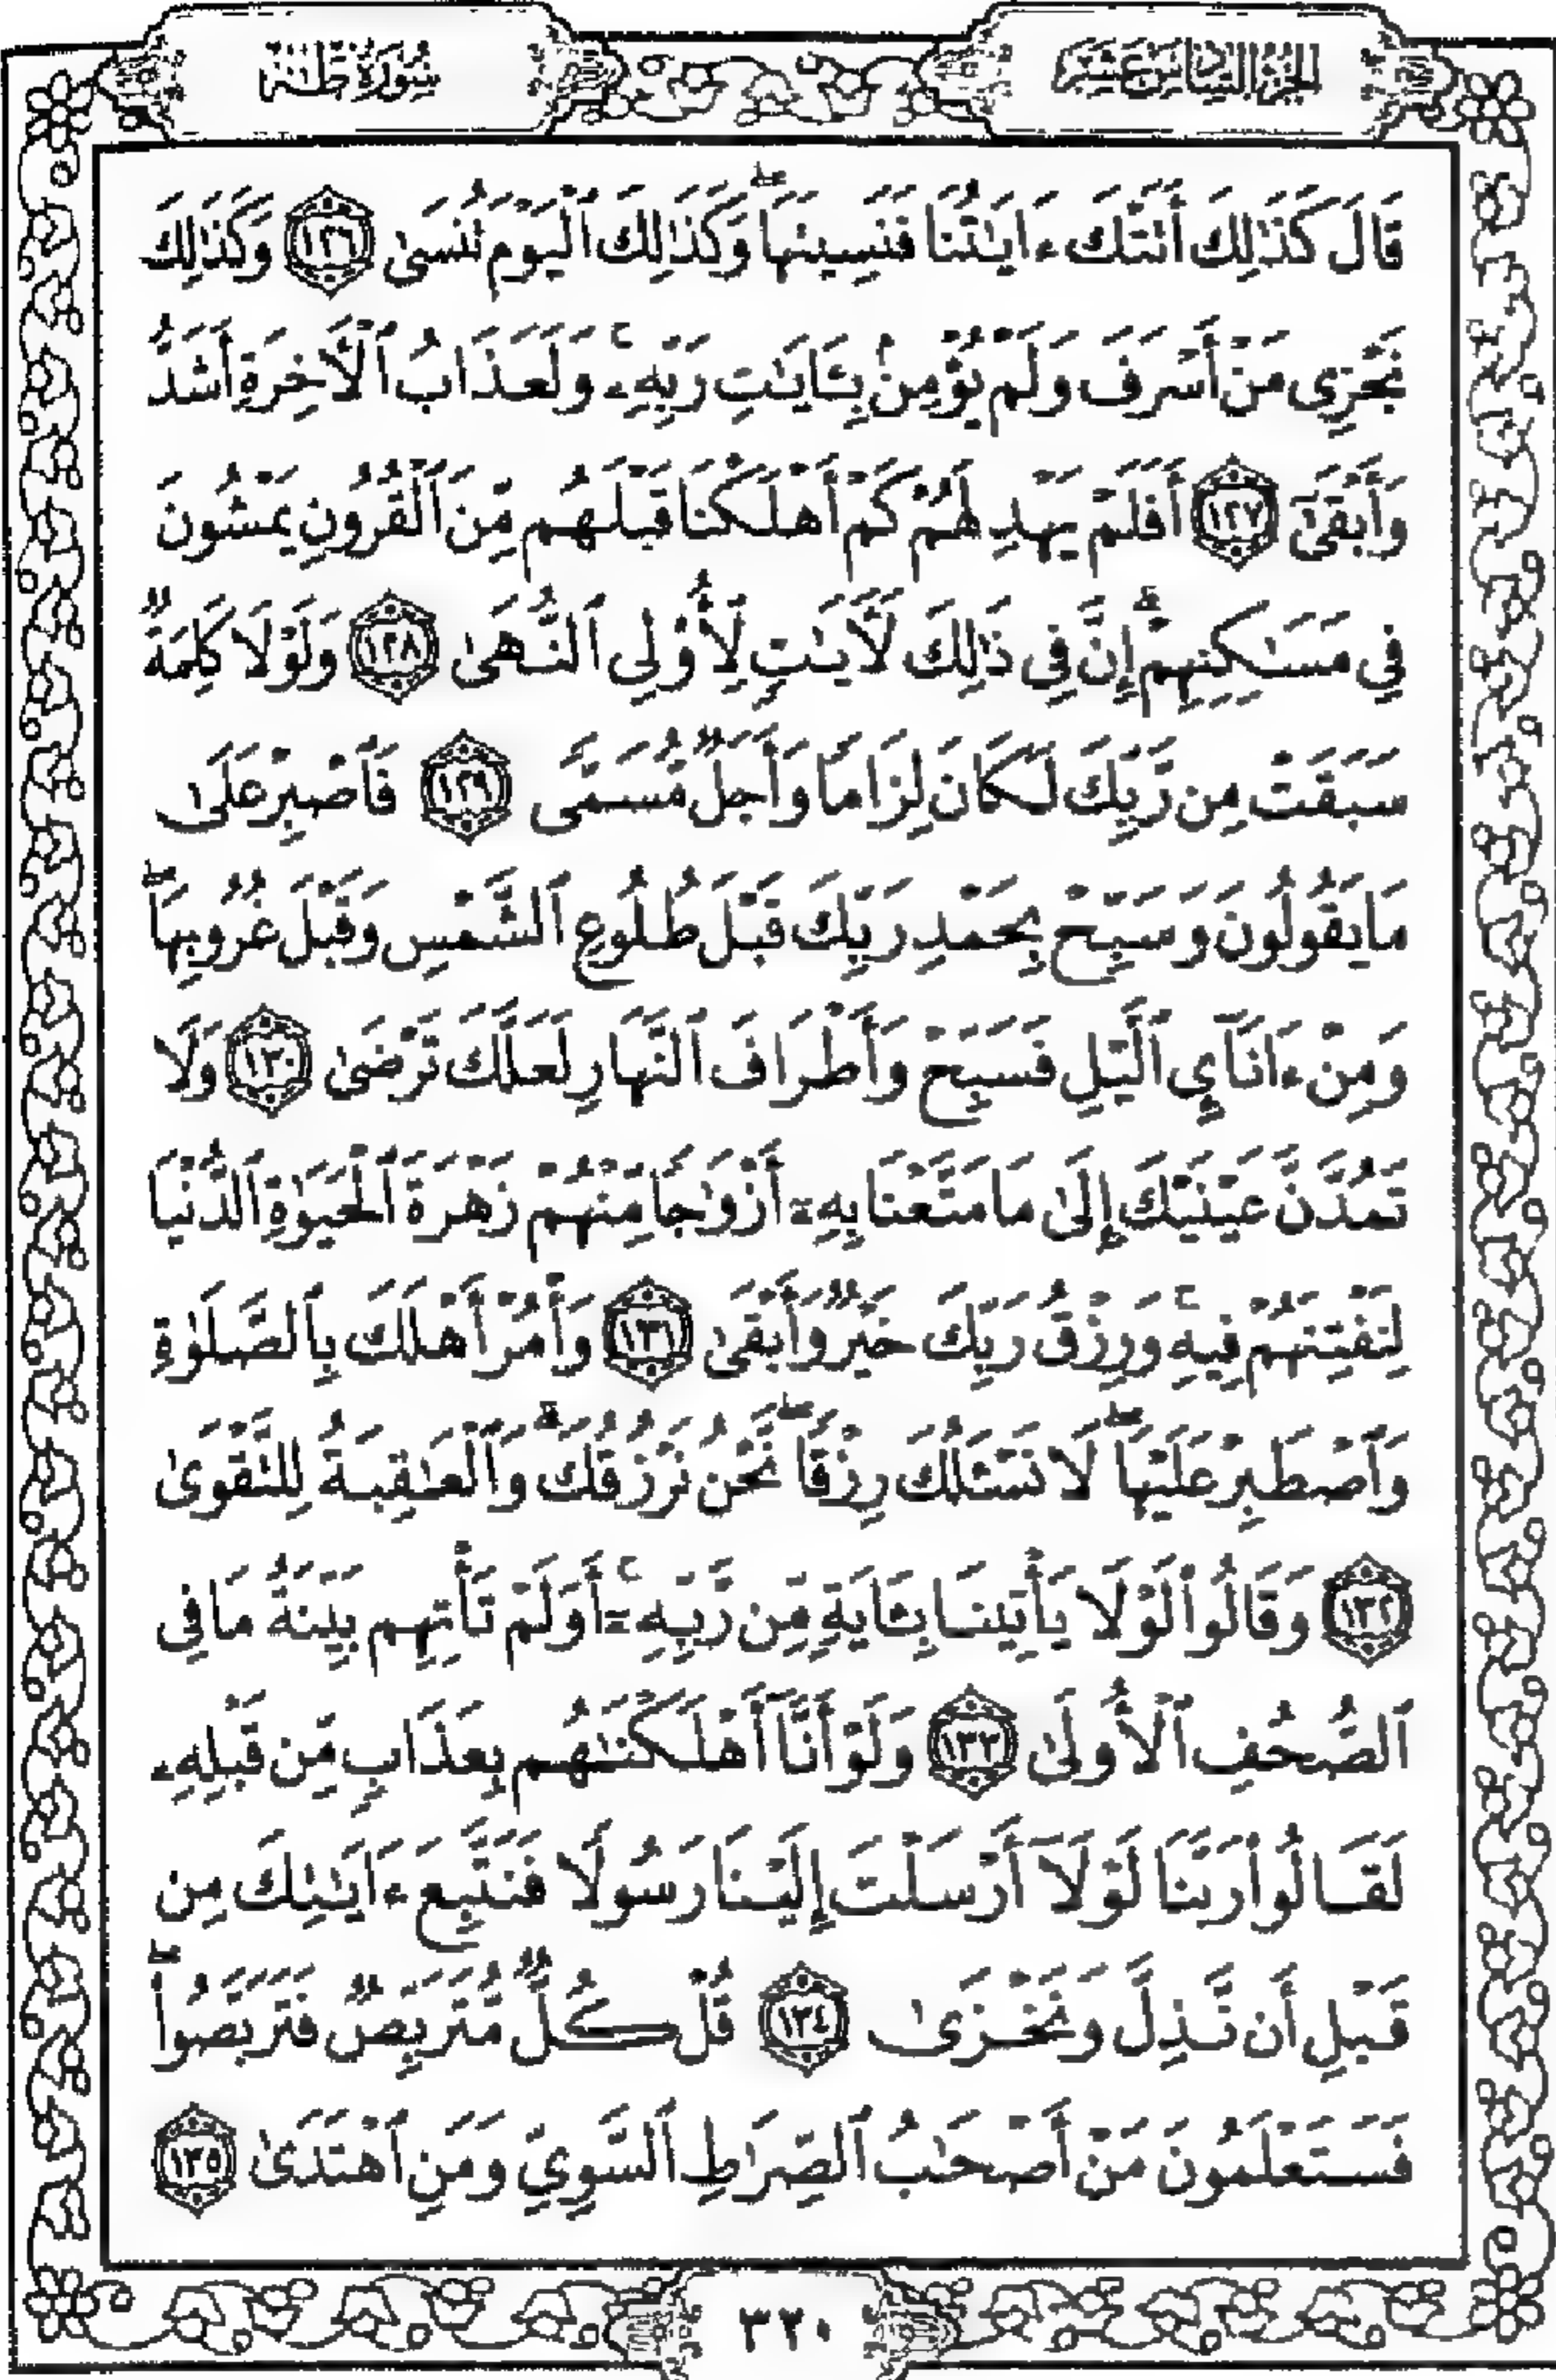 الجزء السادس عشر
سورة طه
قَالَ كَذَٰلِكَ أَتَتْكَ ءَايَٰتُنَا فَنَسِيتَهَا ۖ وَكَذَٰلِكَ ٱلْيَوْمَ تُنسَىٰ ١٢٦ وَكَذَٰلِكَ
نَجْزِى مَنْ أَسْرَفَ وَلَمْ يُؤْمِنۢ بِـَٔايَٰتِ رَبِّهِۦ ۚ وَلَعَذَابُ ٱلْءَاخِرَةِ أَشَدُّ
وَأَبْقَىٰٓ ١٢٧ أَفَلَمْ يَهْدِ لَهُمْ كَمْ أَهْلَكْنَا قَبْلَهُم مِّنَ ٱلْقُرُونِ يَمْشُونَ
فِى مَسَٰكِنِهِمْ ۗ إِنَّ فِى ذَٰلِكَ لَءَايَٰتٍ لِّأُو۟لِى ٱلنُّهَىٰ ١٢٨ وَلَوْلَا كَلِمَةٌ
سَبَقَتْ مِن رَّبِّكَ لَكَانَ لِزَامًا وَأَجَلٌ مُّسَمًّى ١٢٩ فَٱصْبِرْ عَلَىٰ
مَا يَقُولُونَ وَسَبِّحْ بِحَمْدِ رَبِّكَ قَبْلَ طُلُوعِ ٱلشَّمْسِ وَقَبْلَ غُرُوبِهَا ۖ
وَمِنْ ءَانَآئِ ٱلَّيْلِ فَسَبِّحْ وَأَطْرَافَ ٱلنَّهَارِ لَعَلَّكَ تَرْضَىٰ ١٣٠ وَلَا
تَمُدَّنَّ عَيْنَيْكَ إِلَىٰ مَا مَتَّعْنَا بِهِۦٓ أَزْوَٰجًا مِّنْهُمْ زَهْرَةَ ٱلْحَيَوٰةِ ٱلدُّنْيَا
لِنَفْتِنَهُمْ فِيهِ ۚ وَرِزْقُ رَبِّكَ خَيْرٌ وَأَبْقَىٰ ١٣١ وَأْمُرْ أَهْلَكَ بِٱلصَّلَوٰةِ
وَٱصْطَبِرْ عَلَيْهَا ۖ لَا نَسْـَٔلُكَ رِزْقًا ۖ نَّحْنُ نَرْزُقُكَ ۗ وَٱلْعَٰقِبَةُ لِلتَّقْوَىٰ
١٣٢ وَقَالُوا۟ لَوْلَا يَأْتِينَا بِـَٔايَةٍ مِّن رَّبِّهِۦٓ ۚ أَوَلَمْ تَأْتِهِم بَيِّنَةُ مَا فِى
ٱلصُّحُفِ ٱلْأُولَىٰ ١٣٣ وَلَوْ أَنَّآ أَهْلَكْنَٰهُم بِعَذَابٍ مِّن قَبْلِهِۦ
لَقَالُوا۟ رَبَّنَا لَوْلَآ أَرْسَلْتَ إِلَيْنَا رَسُولًا فَنَتَّبِعَ ءَايَٰتِكَ مِن
قَبْلِ أَن نَّذِلَّ وَنَخْزَىٰ ١٣٤ قُلْ كُلٌّ مُّتَرَبِّصٌ فَتَرَبَّصُوا۟ ۖ
فَسَتَعْلَمُونَ مَنْ أَصْحَٰبُ ٱلصِّرَٰطِ ٱلسَّوِىِّ وَمَنِ ٱهْتَدَىٰ ١٣٥
٣٢٠